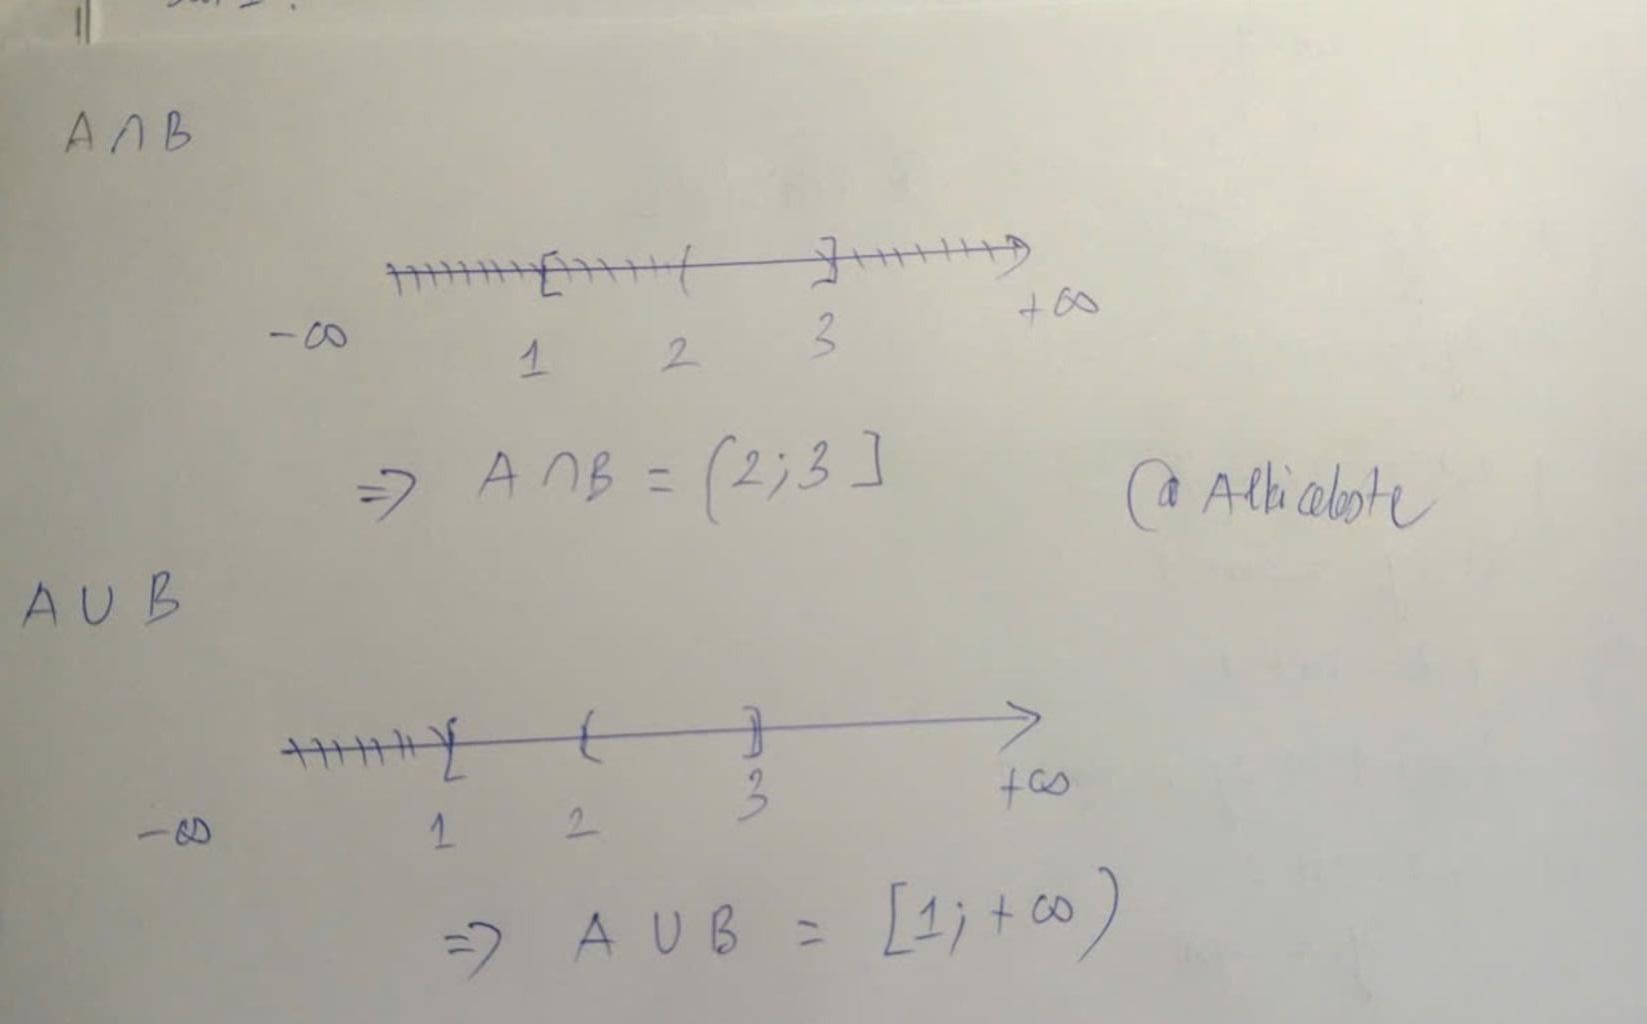 A ∩ B
-∞ 1 2 3 +∞
⇒ A ∩ B = (2; 3]
@ Albiceleste
A ∪ B
-∞ 1 2 3 +∞
⇒ A ∪ B = [1; +∞)